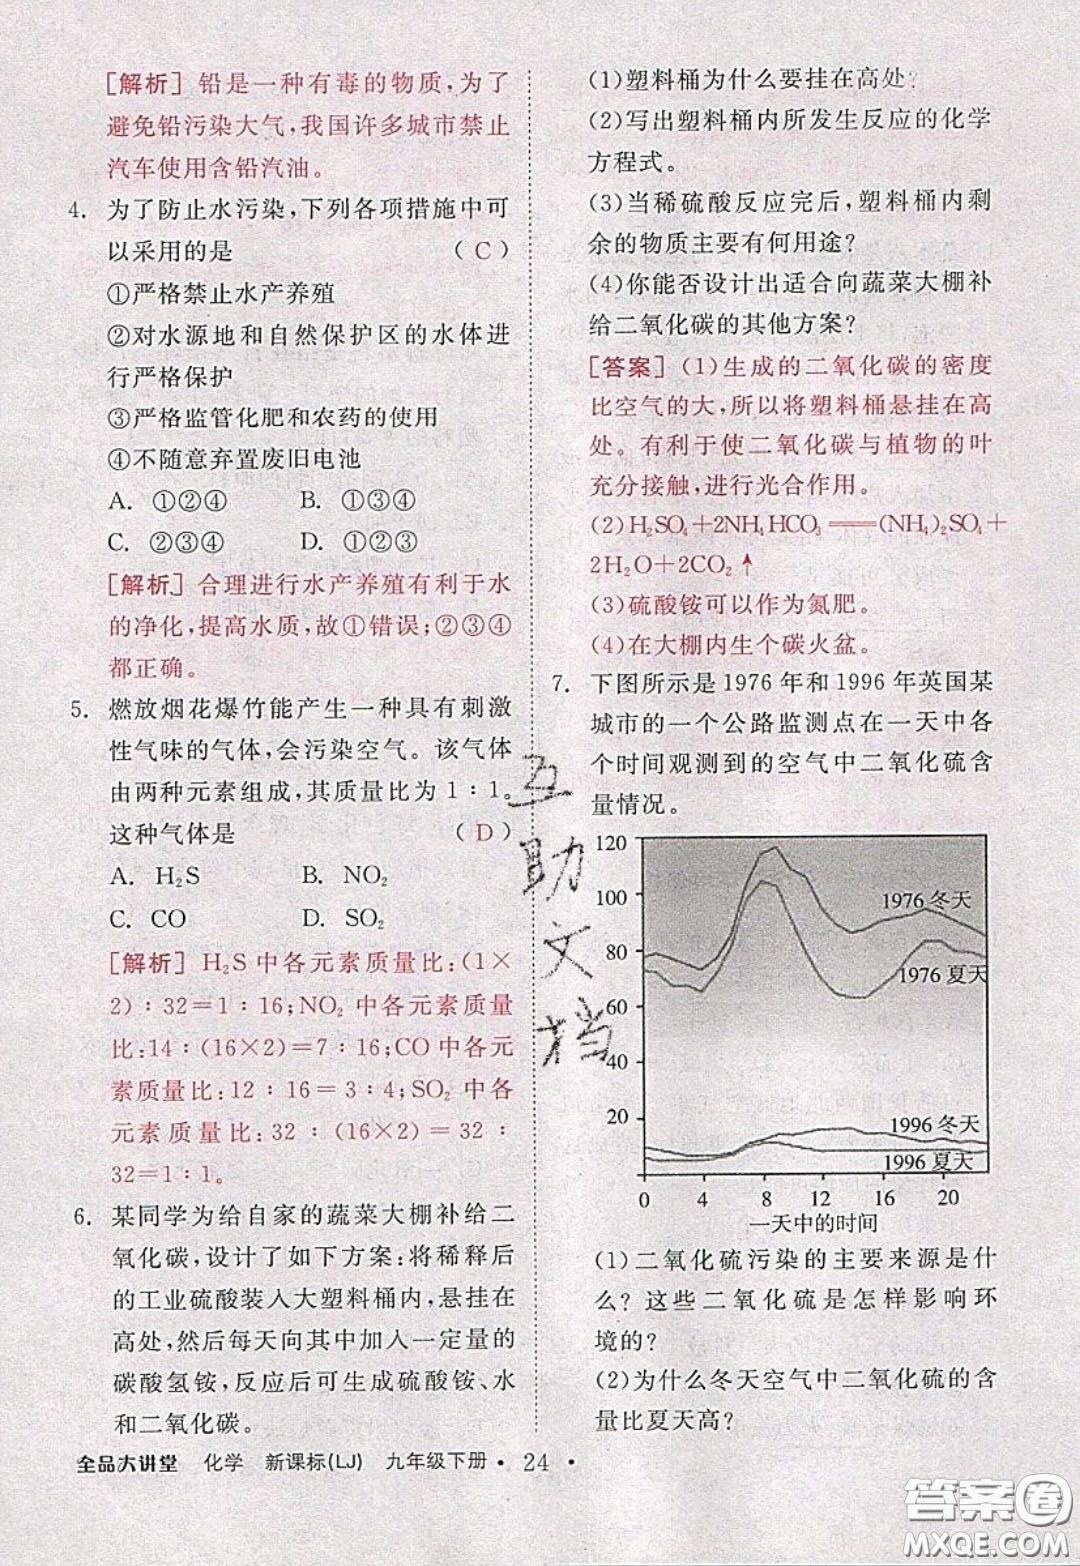 [解析] 铅是一种有毒的物质,为了
避免铅污染大气,我国许多城市禁止
汽车使用含铅汽油。
4. 为了防止水污染,下列各项措施中可
以采用的是 ( C )
①严格禁止水产养殖
②对水源地和自然保护区的水体进
行严格保护
③严格监管化肥和农药的使用
④不随意弃置废旧电池
A. ①②④ B. ①③④
C. ②③④ D. ①②③
[解析] 合理进行水产养殖有利于水
的净化,提高水质,故①错误;②③④
都正确。
5. 燃放烟花爆竹能产生一种具有刺激
性气味的气体,会污染空气。该气体
由两种元素组成,其质量比为 1∶1。
这种气体是 ( D )
A. H₂S B. NO₂
C. CO D. SO₂
[解析] H₂S中各元素质量比:(1×
2)∶32=1∶16;NO₂ 中各元素质量
比:14∶(16×2)=7∶16;CO中各元
素质量比:12∶16=3∶4;SO₂ 中各
元素质量比:32∶(16×2)=32∶
32=1∶1。
6. 某同学为给自家的蔬菜大棚补给二
氧化碳,设计了如下方案:将稀释后
的工业硫酸装入大塑料桶内,悬挂在
高处,然后每天向其中加入一定量的
碳酸氢铵,反应后可生成硫酸铵、水
和二氧化碳。
(1)塑料桶为什么要挂在高处?
(2)写出塑料桶内所发生反应的化学
方程式。
(3)当稀硫酸反应完后,塑料桶内剩
余的物质主要有何用途?
(4)你能否设计出适合向蔬菜大棚补
给二氧化碳的其他方案?
[答案] (1)生成的二氧化碳的密度
比空气的大,所以将塑料桶悬挂在高
处。有利于使二氧化碳与植物的叶
充分接触,进行光合作用。
(2)H₂SO₄+2NH₄HCO₃══(NH₄)₂SO₄+
2H₂O+2CO₂↑
(3)硫酸铵可以作为氮肥。
(4)在大棚内生个碳火盆。
7. 下图所示是1976年和1996年英国某
城市的一个公路监测点在一天中各
个时间观测到的空气中二氧化硫含
量情况。
120
100
80
60
40
20
1976 冬天
1976 夏天
1996 冬天
1996 夏天
0 4 8 12 16 20
一天中的时间
(1)二氧化硫污染的主要来源是什
么?这些二氧化硫是怎样影响环
境的?
(2)为什么冬天空气中二氧化硫的含
量比夏天高?
互助文档
全品大讲堂 化学 新课标(LJ) 九年级下册 • 24 •
答案卷
MXQE.COM